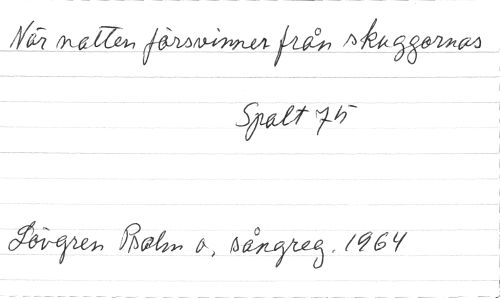 När natten försvinner från skuggornas
Spalt 75
Lövgren Psalm o. sångreg. 1964